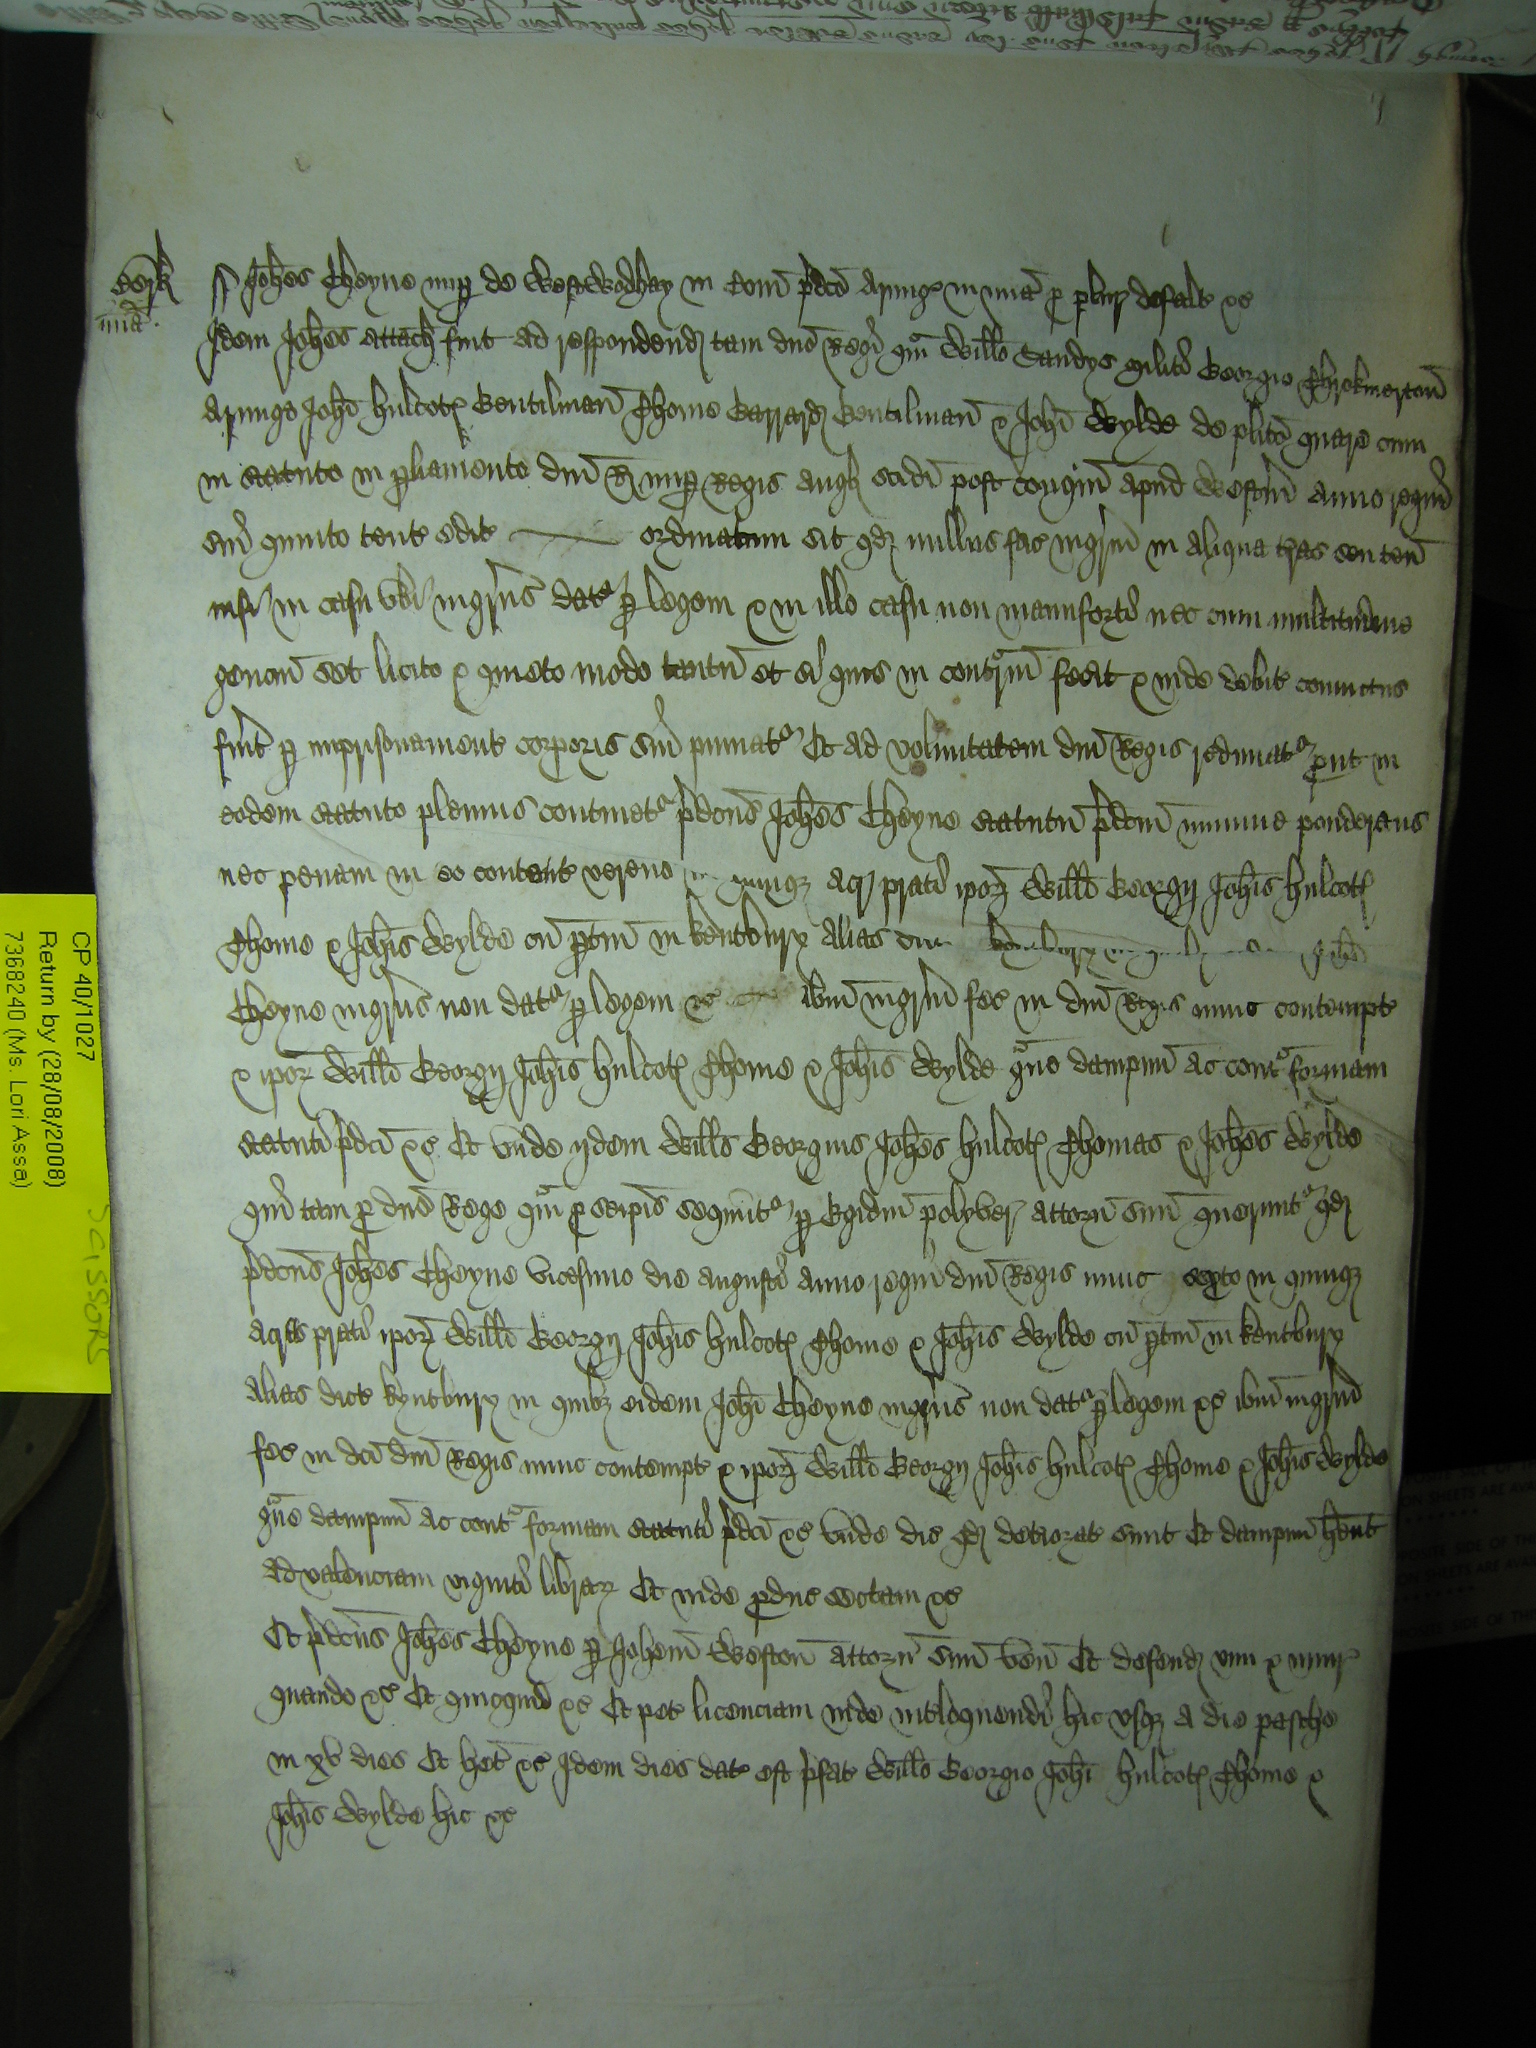 Berk
mia.
Joh̅es Cheyne nup̱ de Westwodhay in Com̅ p̅dc̅o Armig̅ in m̅ia p̱ plur̅ defalt̅ &c
Idem Joh̅es attach̅ fuit ad respondend̅ tam dn̅o Regi qm̅ Will̅o Sandys Milit̅ Georgio Throkmerton̅
Armig̅o Joh̅i Hulcot̅ Gentilman̅ Thome Garrard̅ Gentilman̅ & Joh̅i Wylde de pl̅ito quare cum
in statuto in p̱liamento dn̅i R̅ nup̱ Regis Angl̅ sc̅di post conqm̅ apud Westm̅ anno regni
sui quinto tent̅ edit̅ ordinatum sit qd̅ nullus fac̅ ingr̅m in aliqua t̅ras seu ten̅
nisi in casu ubi ingr̅us dat̅ p̱ legem & in illo casu non manuforti nec cum multitudine
gencin̅ set licito & quieto modo tantu̅ et si quis in contr̅m fecit & inde debit̅ convictus
fuit̅ p̱ imprisonament̅ corporis sui puniat̅ Et ad voluntatem dn̅i Regis redimat̅ p̱ut in
eodem statuto plenius continet̅ p̅dc̅us Joh̅es Cheyne statutu̅ p̅dc̅m minime ponderans
nec penam in eo content̅ verens in quinq̅ acr̅ prati ip̅or̅ Will̅i Georgij Joh̅is Hulcot̅
Thome & Joh̅is Wylde cu̅ p̱tin̅ in Kentbury alias Joh̅i
Cheyne ingr̅us non dat̅ p̱ legem &c ib̅m ingr̅m fec̅ in dn̅i Regis nunc contempt̅
& ip̅or̅ Will̅i Georgij Joh̅is Hulcot̅ Thome & Joh̅is Wylde g̅ve dampnu̅ ac cont̅ formam
statuti p̅dc̅i &c Et unde ijdem Will̅s Georgius Joh̅es Hulcot̅ Thomas & Joh̅es Wylde
qui tam p̱ dn̅o Rege qm̅ p̱ seip̅is sequnt̅ p̱ Egidiu̅ Polyver̅ attorn̅ suu̅ querunt̅ qd̅
p̅dc̅us Joh̅es Cheyne vicesimo die Augusti anno regni dn̅i Regis nunc sexto in quinq̅
acr̅is prati ip̅or̅ Will̅i Georgij Joh̅is Hulcot̅ Thome & Joh̅is Wylde cu̅ p̱tin̅ in Kentbury
alias dict̅ Kyntbury in quib̅ eidem Joh̅i Cheyne ingr̅us non dat̅ p̱ legem &c ib̅m ingr̅m
fec̅ in dc̅i dn̅i Regis nunc contempt̅ & ip̅or̅ Will̅i Georgij Joh̅is Hulcot̅ Thome & Joh̅is Wylde
g̅ve dampnu̅ ac cont̅ formam statuti p̅dc̅i &c Unde dic̅ qd̅ deteriorat̅ sunt Et dampnu̅ h̅ent
ad valenciam viginti librar̅ Et inde p̱duc̅ sectam &c
Et p̅dc̅us Joh̅es Cheyne p̱ Joh̅em Weston̅ attorn̅ suu̅ ven̅ Et defend̅ vim & iniur̅
quando &c Et quicquid &c Et pet̅ licenciam inde int̅loquendi hic usq̅ a die pasche
in xv dies Et h̅et &c Idem dies dat̅ est p̅fat̅ Will̅o Georgio Joh̅i Hulcot̅ Thome &
Joh̅is Wylde hic &c
CP 40/1027
Return by (28/08/2008)
7368240 (Ms. Lori Assa)
SCISSORS